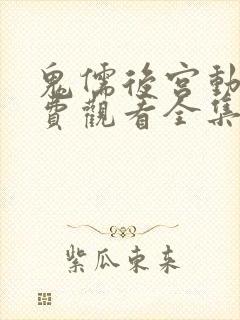 鬼儒後宮動
費觀看全集
紫瓜東来